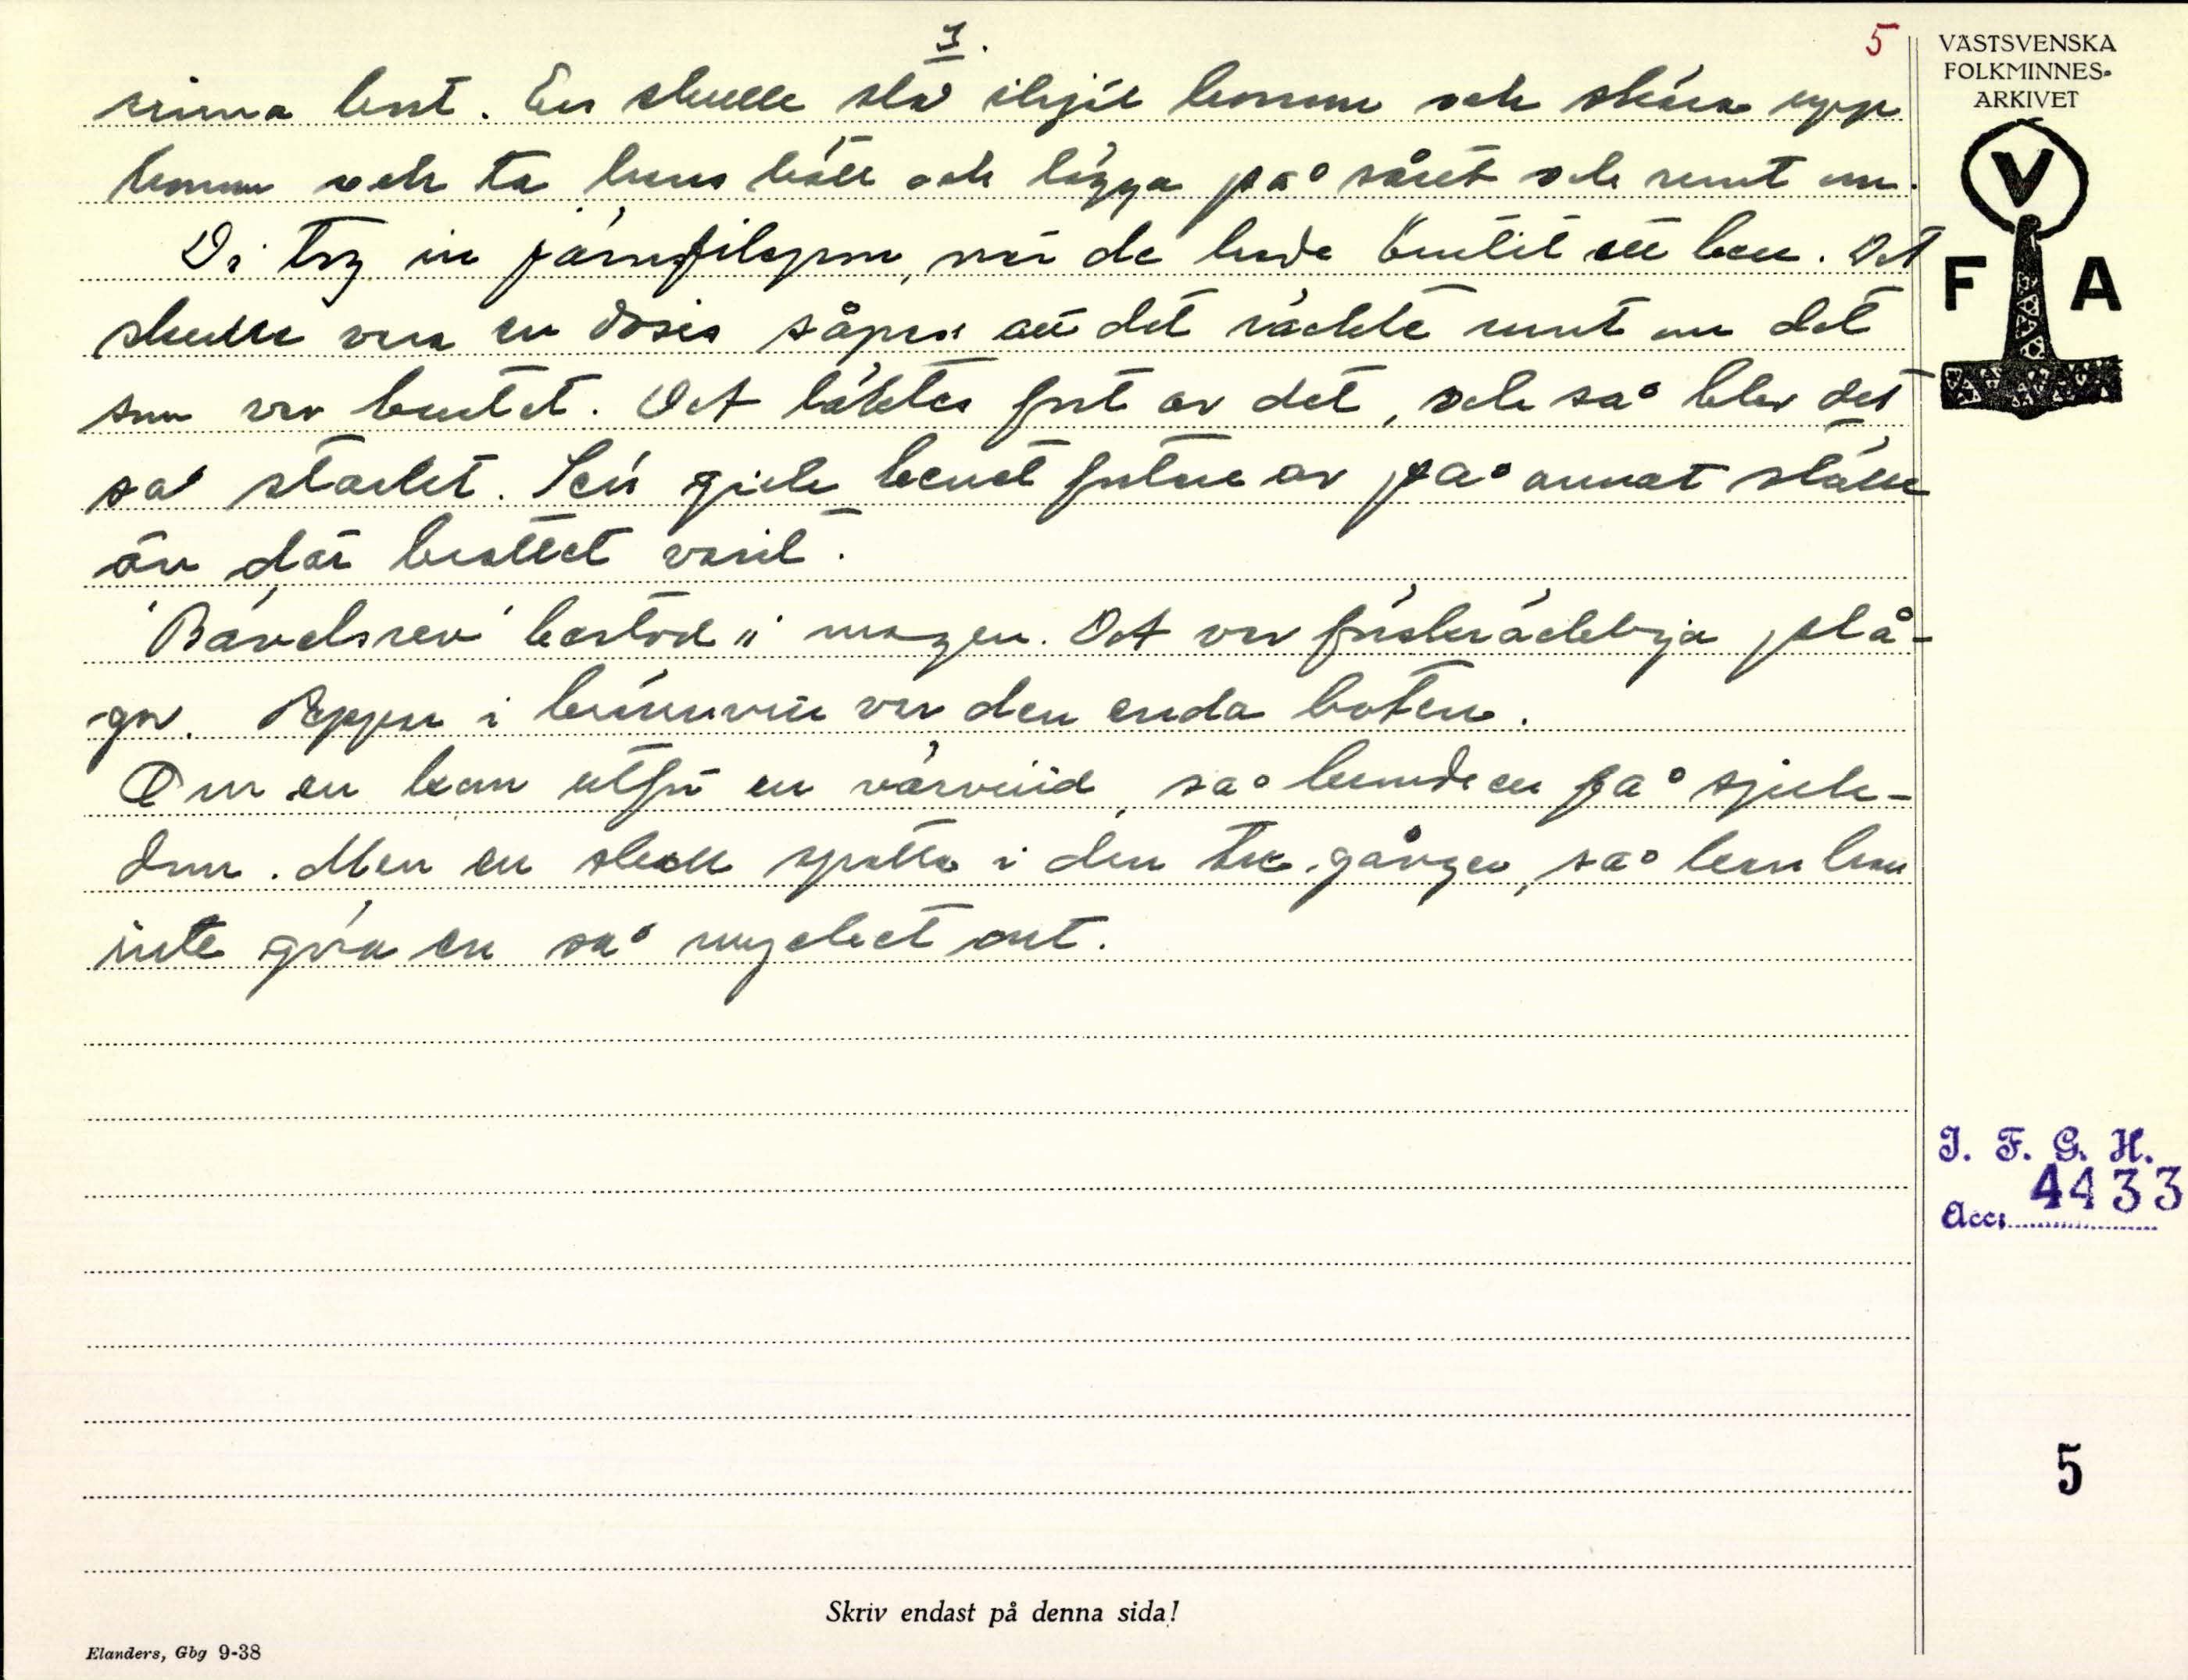 3.
5
rinna bort. En skulle slå ihjäl honom och skära upp
honom och ta hans kött och lägga på såret och runt om.
Di tog in järnfilspon, när de hade brutit ett ben. Det
skulle vara en dosis såpass att det räckte runt om det
som var brutet. Det läktes fort av det, och så blev det
så starkt. Sen gick benet förr av på annat ställe
än där brottet varit.
"Bävelsrev" bestod i magen. Det var förskräckliga plå-
gor. Peppar i brännvin var den enda boten.
Om en kom utför en värvind, så kunde en få sjuk-
dom. Men en skall spotta i den tre gånger, så kan han
inte göra en så mycket ont.
VÄSTSVENSKA
FOLKMINNES-
ARKIVET
V
F A
I. F. G. H.
4433
Acc:
5
Skriv endast på denna sida!
Elanders, Gbg 9-38